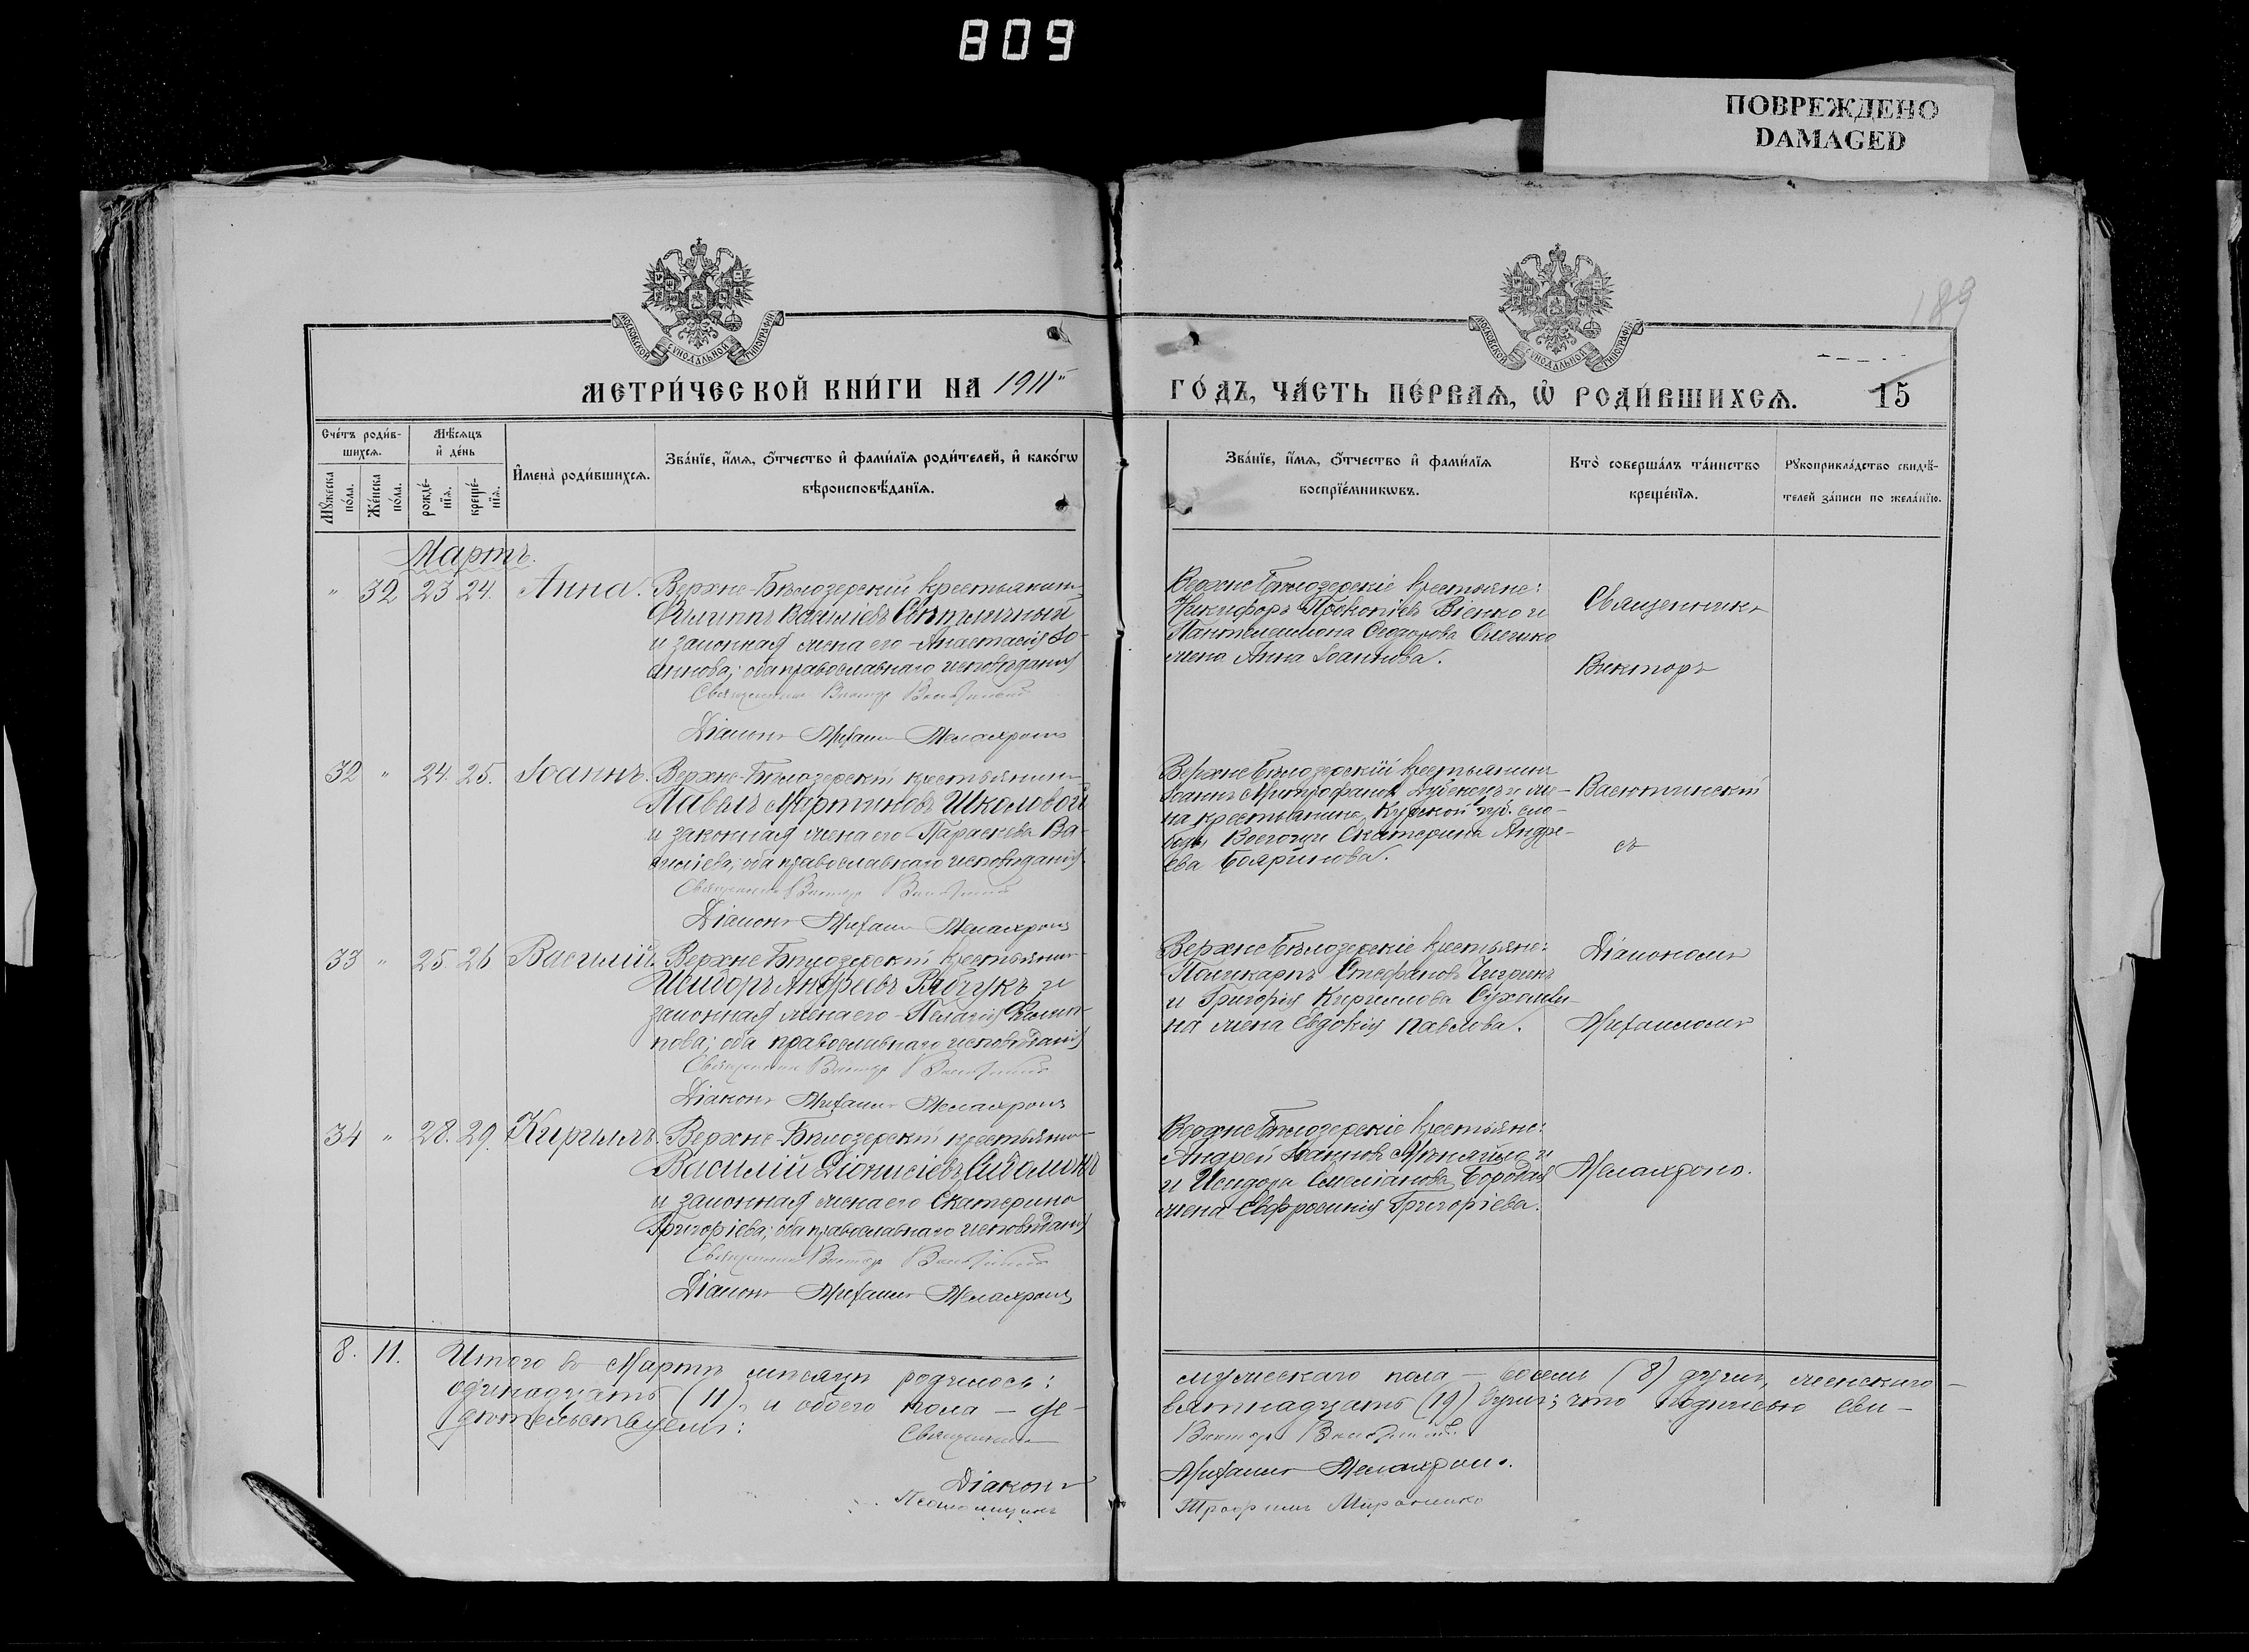 809
ПОВРЕЖДЕНО
DAMAGED
189
МОСКОВСКОЙ СѴНОДАЛЬНОЙ ТИПОГРАФІИ
МОСКОВСКОЙ СѴНОДАЛЬНОЙ ТИПОГРАФІИ
МЕТРИ́ЧЕСКОЙ КНИ́ГИ НА 1911й
ГО́ДЪ, ЧА́СТЬ ПЕ́РВАѦ, Ѡ҆ РОДИ́ВШИХСѦ. 15
Сче́тъ роди́в-
шихсѧ.
Мꙋ́жеска по́ла.
Же́нска по́ла.
Мѣ́сѧцъ
и҆ де́нь
рожде́-
нїѧ.
креще́-
нїѧ.
И҆мена̀ роди́вшихсѧ.
Зва́нїе, и҆́мѧ, ѻ҆́тчество и҆ фами́лїѧ роди́телей, и҆ како́гѡ
вѣроисповѣ́данїѧ.
Зва́нїе, и҆́мѧ, ѻ҆́тчество и҆ фами́лїѧ
воспрїе́мникѡвъ.
Кто̀ соверша́лъ та́инство
креще́нїѧ.
Рꙋкоприкла́дство свидѣ́-
телей за́писи по жела́нїю.
Мартъ.
" 32 23 24. Анна. Верхне-Бѣлозерскій крестьянинъ
Филиппъ Василіевъ Свѣтличный
и законная жена его Анастасія Іо-
аннова; оба православнаго исповѣданія
Священникъ Викторъ Васютинскій
Діаконъ Михаилъ
Верхне Бѣлозерскіе крестьяне:
Никифоръ Прокопіевъ Віенко и
Пантелеимона Ѳеодорова
жена Анна Іоаннова.
Священникъ
Викторъ
32 " 24. 25. Іоаннъ. Верхне-Бѣлозерскій крестьянинъ
Павелъ Мартиновъ Школовой
и законная жена его Параскева Ва-
силіева; оба православнаго исповѣданія.
Священникъ Викторъ Васютинскій
Діаконъ Михаилъ
Верхне Бѣлозерскій крестьянинъ
Іоаннъ Митрофановъ и же-
на крестьянина Курской губ. сло-
боды Екатерина Андре-
ева Бояринова.
Васютинскій
съ
33 " 25. 26 Василій. Верхне Бѣлозерскій крестьянинъ
Исидоръ Андреевъ Рябчукъ и
законная жена его Пелагія Филип-
пова; оба православнаго исповѣданія
Священникъ Викторъ Васютинскій
Діаконъ Михаилъ
Верхне Бѣлозерскіе крестьяне:
Поликарпъ Стефановъ Чигринъ
и Григорія Кириллова Сухоми-
на жена Евдокія Павлова.
Діакономъ
Михаиломъ
34 " 28. 29. Кириллъ. Верхне-Бѣлозерскій крестьянинъ
Василій Діонисіевъ
и законная жена его Екатерина
Григоріева; оба православнаго исповѣданія
Священникъ Викторъ Васютинскій
Діаконъ Михаилъ
Верхне Бѣлозерскіе крестьяне:
Андрей Іоанновъ
и Исидора Емеліанова Бородая
жена Евфросинія Григоріева.
8. 11. Итого въ Мартѣ мѣсяцѣ родилось: мужескаго пола – восемь (8) душъ, женскаго –
одинадцать (11), и обоего пола – де- вятнадцать (19) душъ; что подписью сви-
дѣтельствуемъ:
Священникъ Викторъ Васютинскій
Діаконъ Михаилъ
Псаломщикъ Трофимъ Мироненко